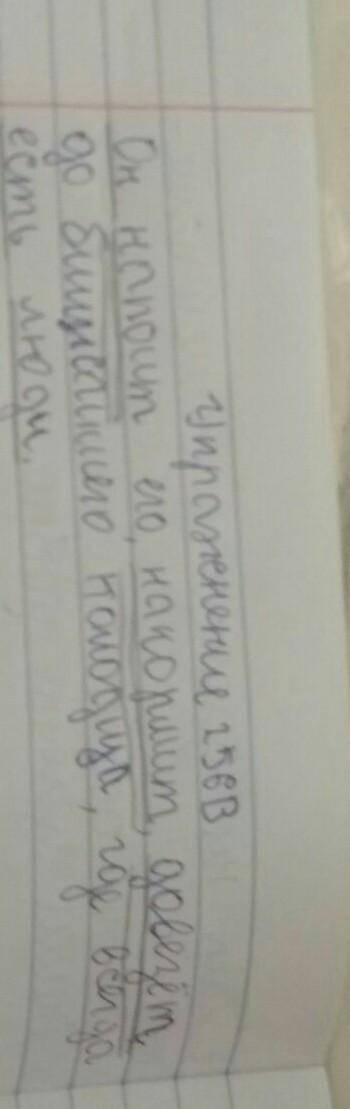 Упражнение 256В
Он напоит его, накормит, довезёт
до ближайшего колодца, где всегда
есть люди.